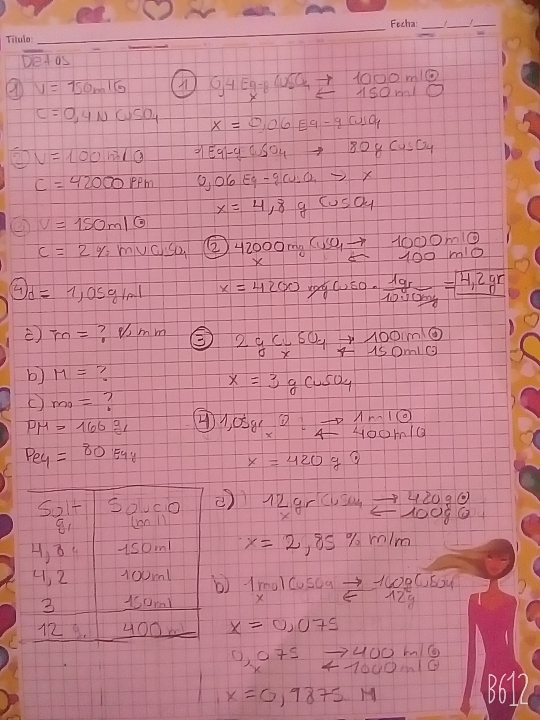 Título:
Fecha: / /
Datos
① V = 150ml
C = 0,4 N CuSO4
② V = 100 ml
C = 42000 ppm
③ V = 150ml
C = 2 % m/v CuSO4
④ d = 1,05g/ml
a) m = ? % mm
b) M = ?
c) mo = ?
PM = 160 g
Peq = 80
Solt g. Solucio (ml)
4,8 150ml
4,2 100ml
3 150ml
12 g. 400ml
① 0,4 Eq-g CuSO4 → 1000ml
x ← 150ml
x = 0,06 Eq-g CuSO4
1Eq-g CuSO4 → 80g CuSO4
0,06 Eq-g CuSO4 → x
x = 4,8 g CuSO4
② 42000mg CuSO4 → 1000ml
x ← 100 ml
x = 4200 mg CuSO4 . 1gr / 1000mg = 4,2gr
③ 2 g CuSO4 → 100ml
x ← 150ml
x = 3 g CuSO4
④ 1,05gr → 1ml
← 400ml
x = 420g
a) 12 gr CuSO4 → 420g
x ← 100g
x = 2,85 % m/m
b) 1mol CuSO4 → 160g CuSO4
x ← 12g
x = 0,075
0,075 → 400 ml
x ← 1000ml
x = 0,1875 M
B612